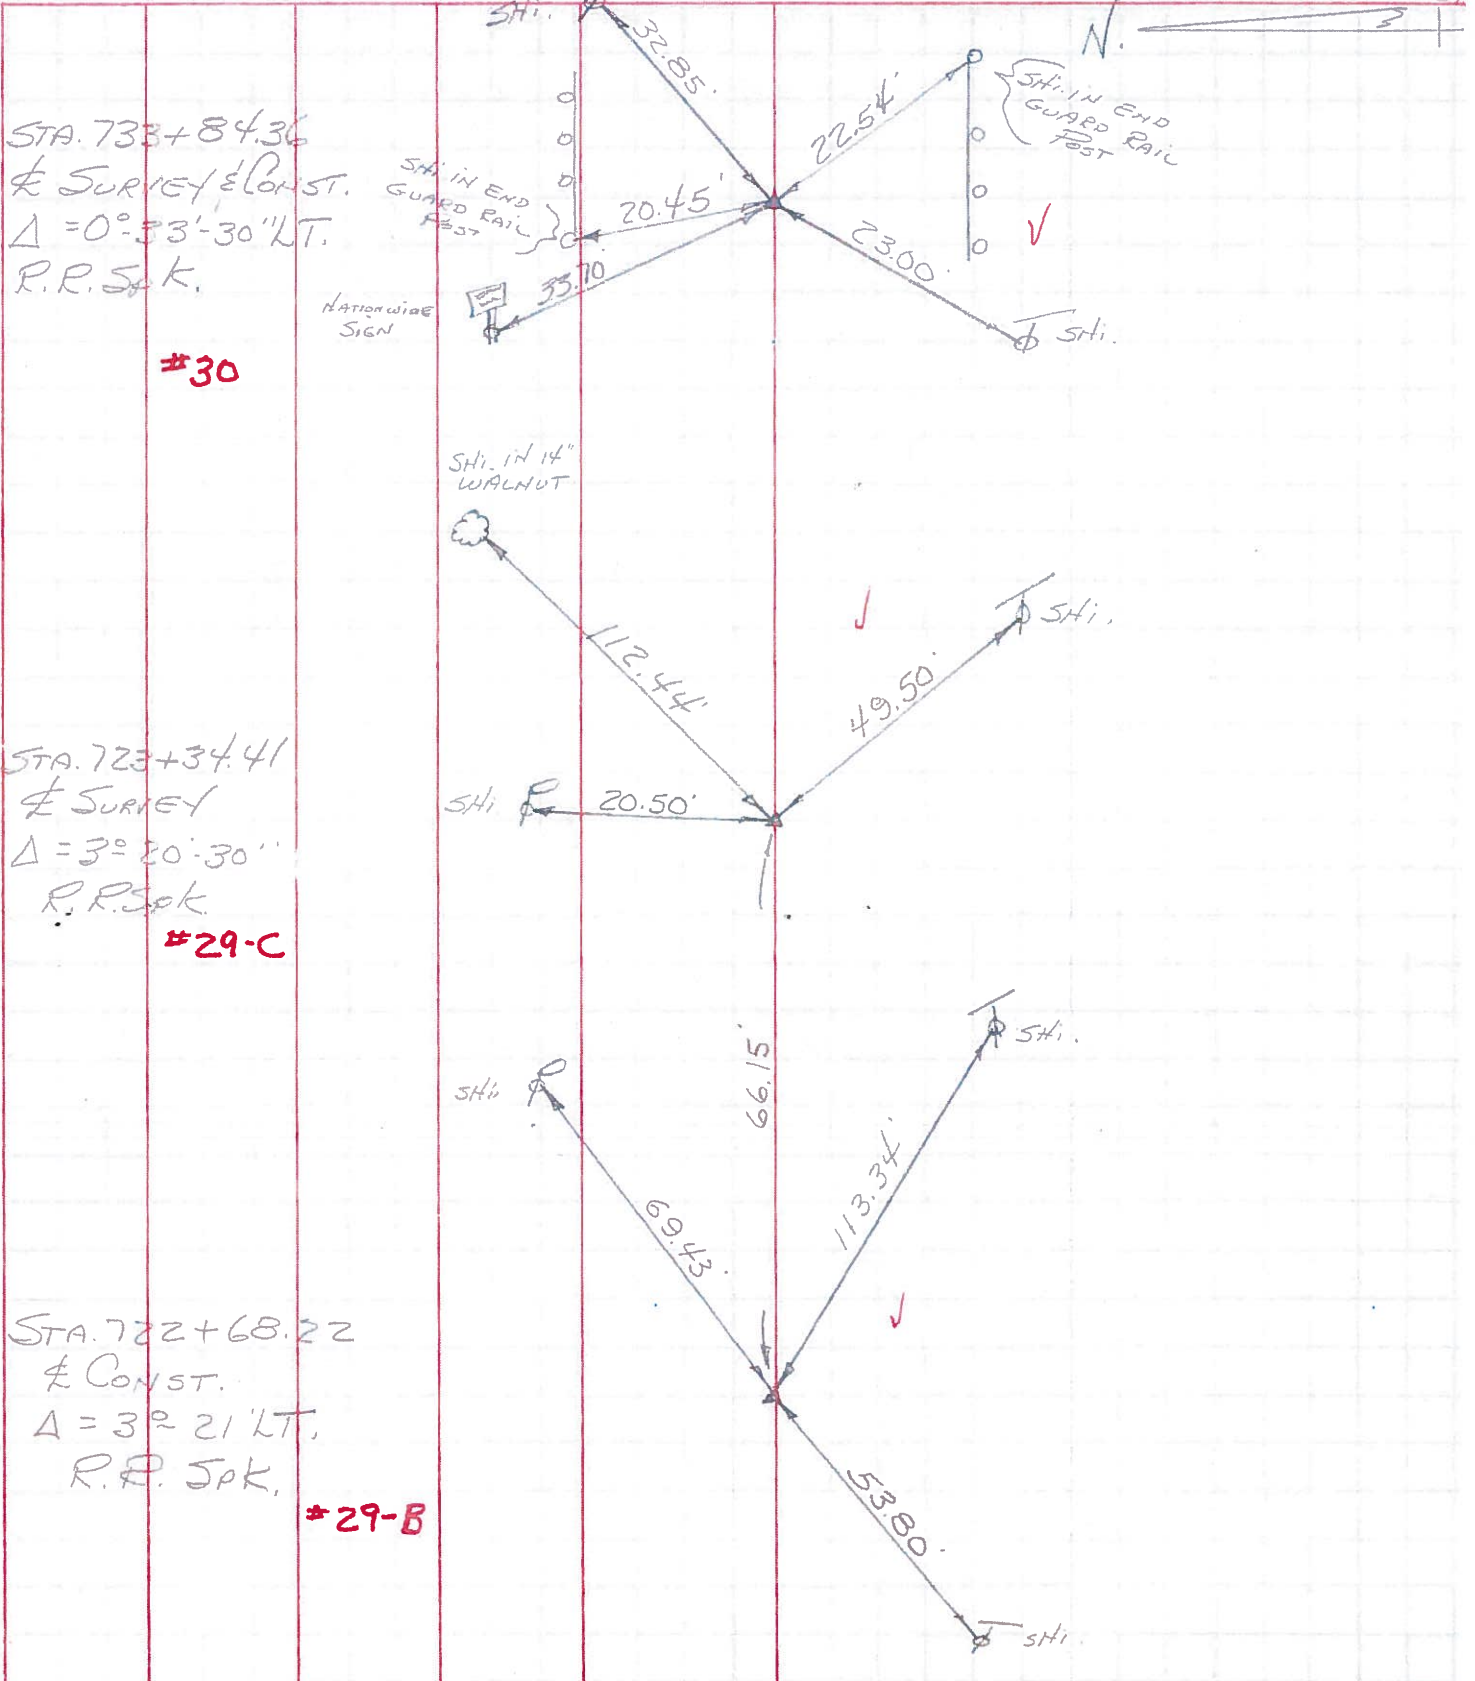 SHi.
32.85'
N.
22.54'
SHi. IN END
GUARD RAIL
POST
STA. 733+84.36
℄ SURVEY & CONST.
Δ = 0°-33'-30" LT.
R.R. Spk.
SHi IN END
GUARD RAIL
POST
20.45'
23.00'
33.70
NATIONWIDE
SIGN
SHi.
#30
SHi. IN 14"
WALNUT
SHi.
112.44'
49.50'
STA. 723+34.41
℄ SURVEY
Δ = 3°-20'-30"
R.R. Spk.
#29-C
SHi
20.50'
SHi.
66.15'
SHi.
113.34'
69.43'
STA. 722+68.22
℄ CONST.
Δ = 3°-21' LT.
R.R. Spk.
#29-B
53.80'
SHi.